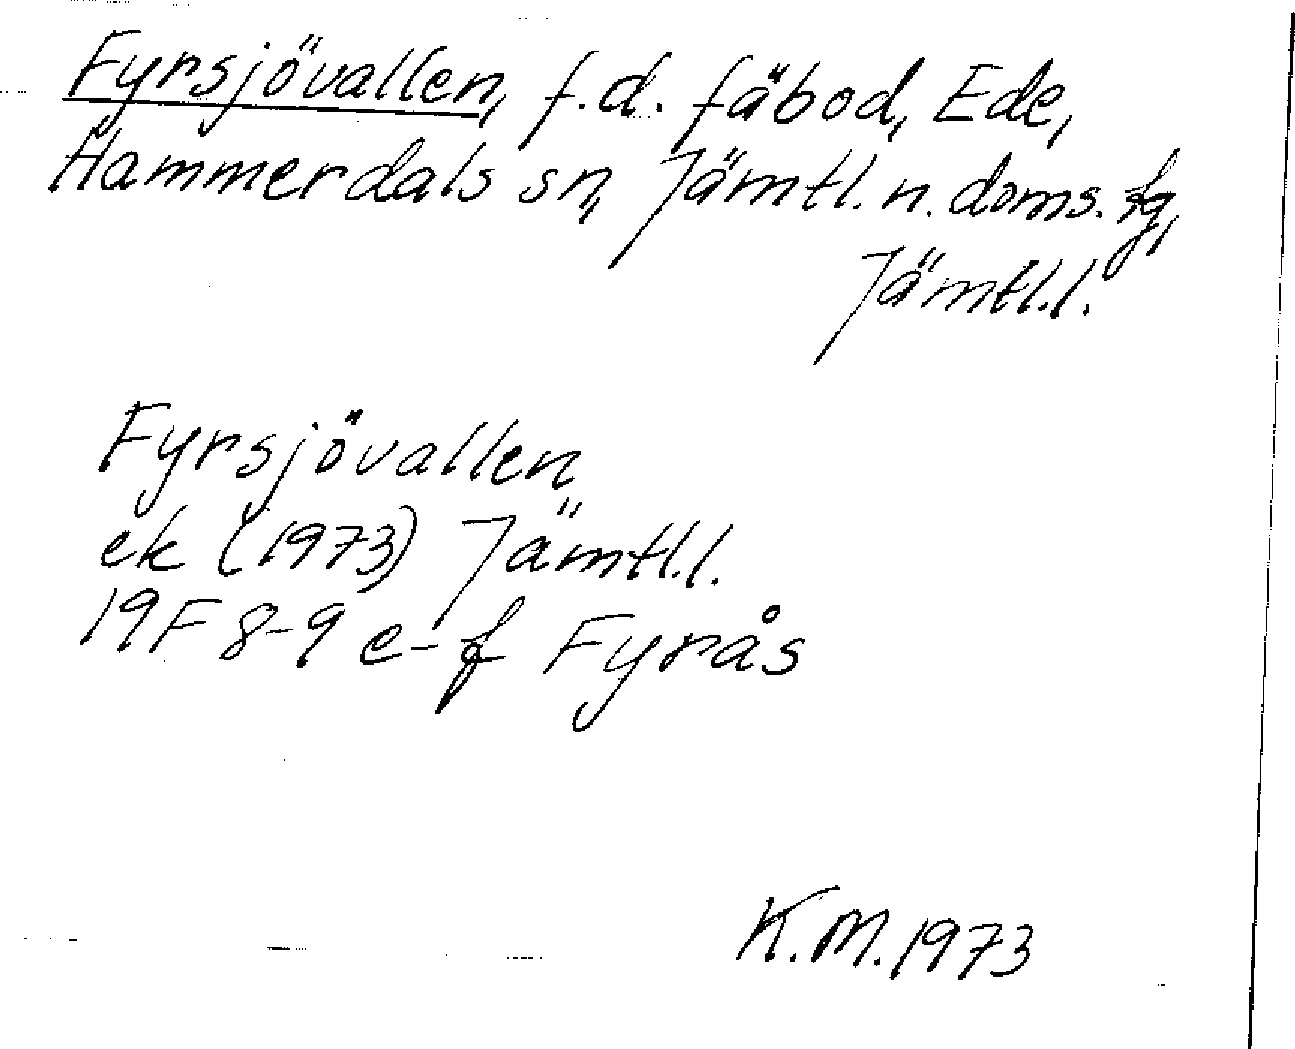 Fyrsjövallen, f.d. fäbod, Ede,
Hammerdals sn, Jämtl. n. doms. fg,
Jämtl.l.
Fyrsjövallen
ek (1973) Jämtl.l.
19F 8-9 e-f Fyrås
K.M. 1973